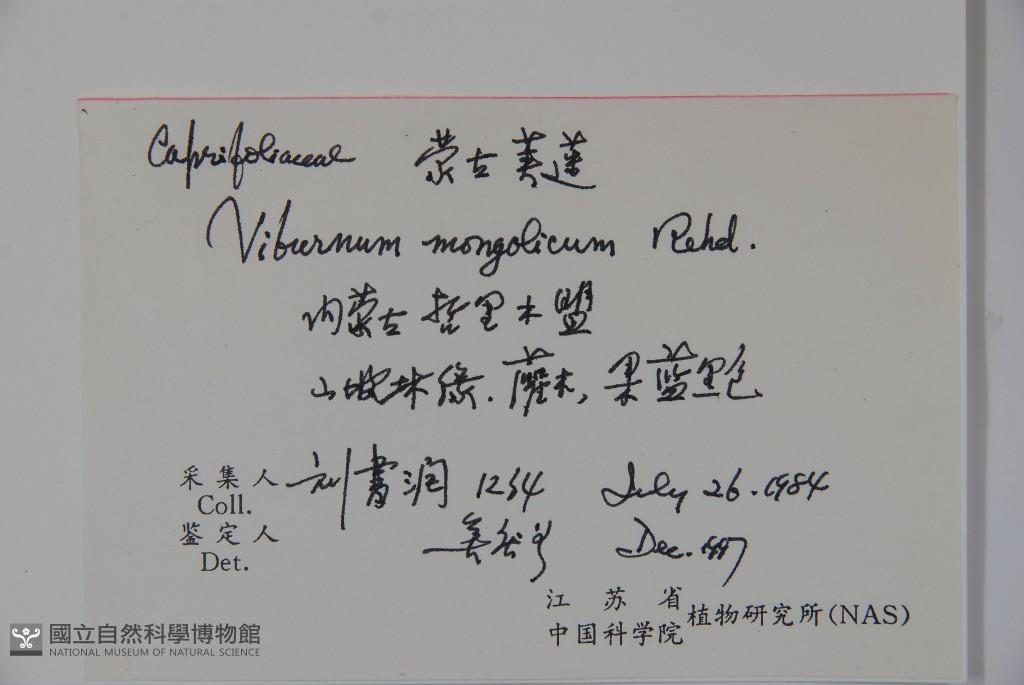 Caprifoliaceae 蒙古荚蒾
Viburnum mongolicum Rehd.
内蒙古 哲里木盟
山坡林缘. 灌木, 果蓝黑色
采集人 刘書润 1234 July 26. 1984
Coll.
鉴定人 Dec. 1997
Det.
江苏省
中国科学院 植物研究所(NAS)
國立自然科學博物館
NATIONAL MUSEUM OF NATURAL SCIENCE